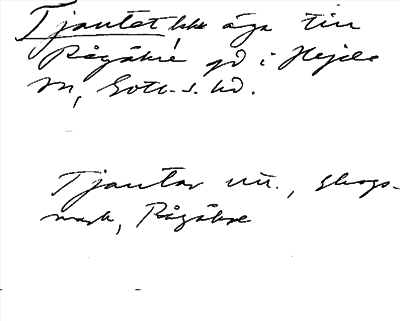 Tjautet, lht äga till
Rågåkre gd i Hejde
sn, Gotl. s. hd.
Tjautar utt., skogs-
mark, Rågåkre